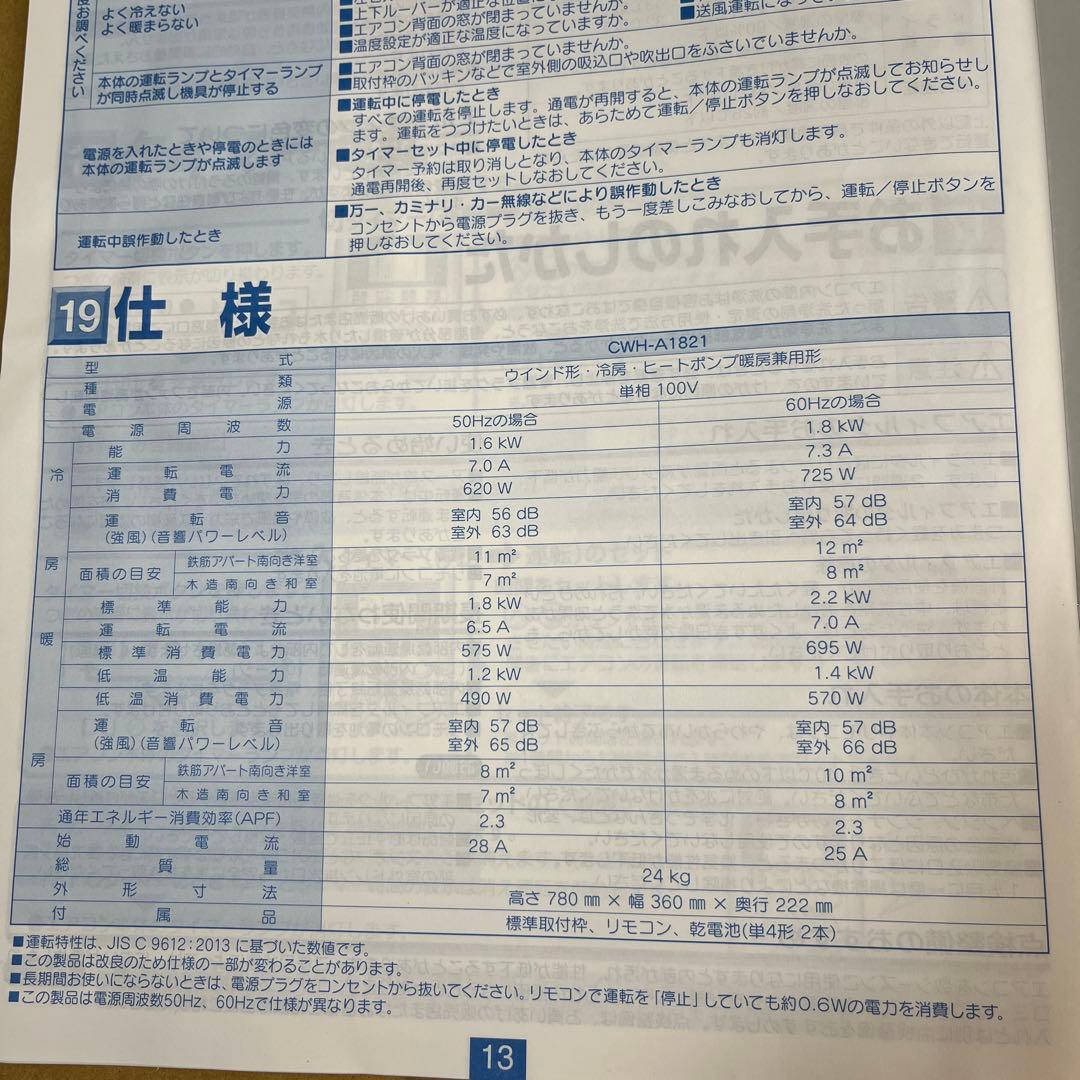 度お調べください
よく冷えない
よく暖まらない
■上下ルーバーが適正な位置に
■エアコン背面の窓が閉まっていませんか。
■温度設定が適正な温度になっていますか。
■送風運転になっていませ
本体の運転ランプとタイマーランプ
が同時点滅し機具が停止する
■エアコン背面の窓が閉まっていませんか。
■取付枠のパッキンなどで室外側の吸込口や吹出口をふさいでいませんか。
電源を入れたときや停電のときには
本体の運転ランプが点滅します
■運転中に停電したとき
すべての運転を停止します。通電が再開すると、本体の運転ランプが点滅してお知らせし
ます。運転をつづけたいときは、あらためて運転/停止ボタンを押しなおしてください。
■タイマーセット中に停電したとき
タイマー予約は取り消しとなり、本体のタイマーランプも消灯します。
通電再開後、再度セットしなおしてください。
運転中誤作動したとき
■万一、カミナリ・カー無線などにより誤作動したとき
コンセントから電源プラグを抜き、もう一度差しこみなおしてから、運転/停止ボタンを
押しなおしてください。
19 仕 様
型 式 CWH-A1821
種 類 ウインド形・冷房・ヒートポンプ暖房兼用形
電 源 単相 100V
電 源 周 波 数 50Hzの場合 60Hzの場合
冷 房
能 力 1.6 kW 1.8 kW
運 転 電 流 7.0 A 7.3 A
消 費 電 力 620 W 725 W
運 転 音 室内 56 dB 室内 57 dB
(強風)(音響パワーレベル) 室外 63 dB 室外 64 dB
面積の目安 鉄筋アパート南向き洋室 11 m² 12 m²
木造南向き和室 7 m² 8 m²
暖 房
標 準 能 力 1.8 kW 2.2 kW
運 転 電 流 6.5 A 7.0 A
標 準 消 費 電 力 575 W 695 W
低 温 能 力 1.2 kW 1.4 kW
低 温 消 費 電 力 490 W 570 W
運 転 音 室内 57 dB 室内 57 dB
(強風)(音響パワーレベル) 室外 65 dB 室外 66 dB
面積の目安 鉄筋アパート南向き洋室 8 m² 10 m²
木造南向き和室 7 m² 8 m²
通年エネルギー消費効率(APF) 2.3 2.3
始 動 電 流 28 A 25 A
総 質 量 24 kg
外 形 寸 法 高さ 780 mm × 幅 360 mm × 奥行 222 mm
付 属 品 標準取付枠、リモコン、乾電池(単4形 2本)
■運転特性は、JIS C 9612:2013 に基づいた数値です。
■この製品は改良のため仕様の一部が変わることがあります。
■長期間お使いにならないときは、電源プラグをコンセントから抜いてください。リモコンで運転を「停止」していても約0.6Wの電力を消費します。
■この製品は電源周波数50Hz、60Hzで仕様が異なります。
13